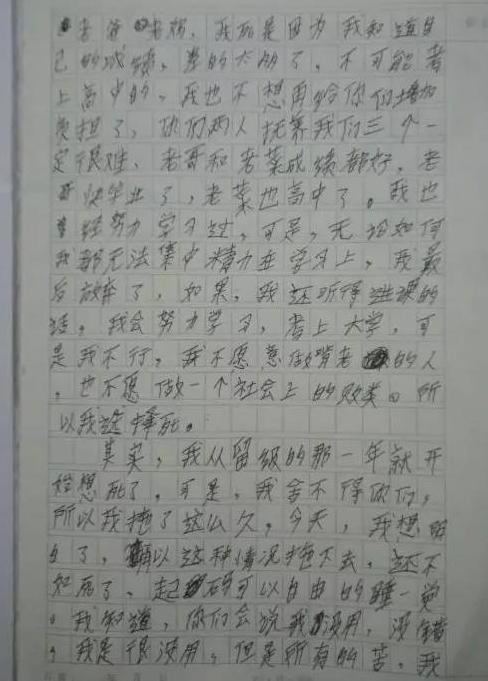 老爸 老妈，我而是因为我知道自
己的成绩，差的太多了，不可能考
上高中的，我也不想再给你们增加
负担了，你们两人抚养我们三个一
定很难，老哥和老菜成绩都好，老
哥快毕业了，老菜也高中了。我也
曾经努力学习过，可是，无论如何
我都无法集中精力在学习上，我最
后放弃了，如果，我还听得进课的
话，我会努力学习，考上大学，可
是我不行，我不愿意做啃老的人
，也不愿做一个社会上的败类。所
以我选择死。
其实，我从留级的那一年就开
始想死了，可是，我舍不得你们，
所以我拖了这么久，今天，我想明
白了，以这种情况拖下去，还不
如死了，起码可以自由的睡一觉
。我知道，你们会说我没用，没错
，我是很没用，但是所有的苦，我